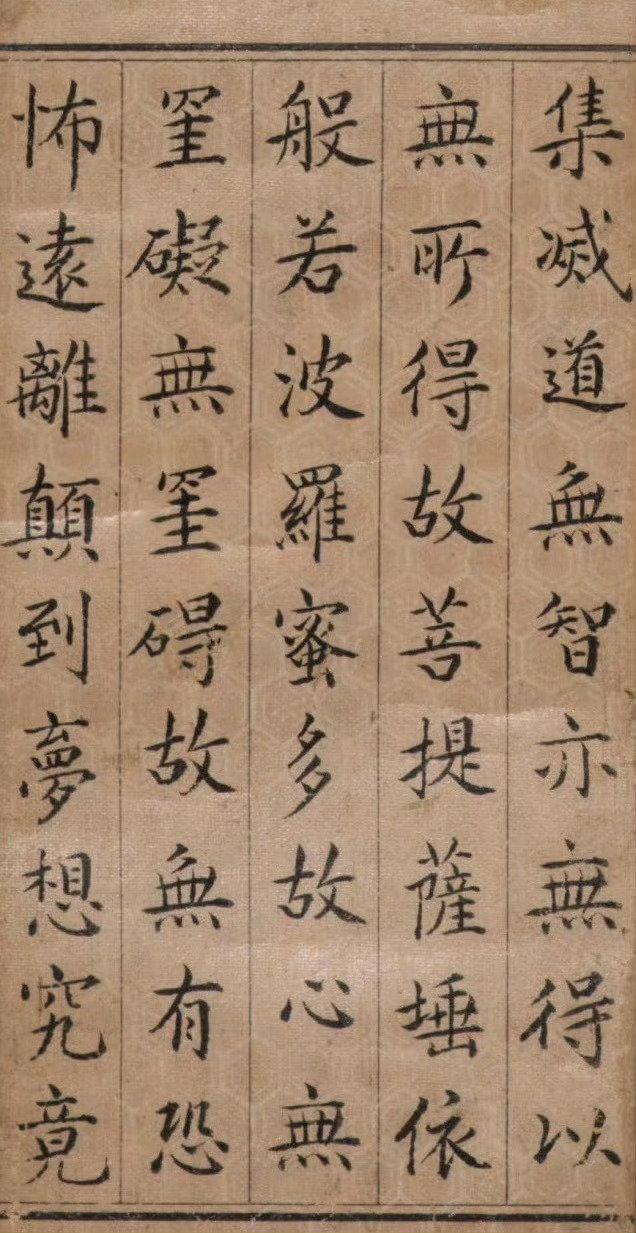 集滅道無智亦無得以
無所得故菩提薩埵依
般若波羅蜜多故心無
罣礙無罣碍故無有恐
怖遠離顛到夢想究竟